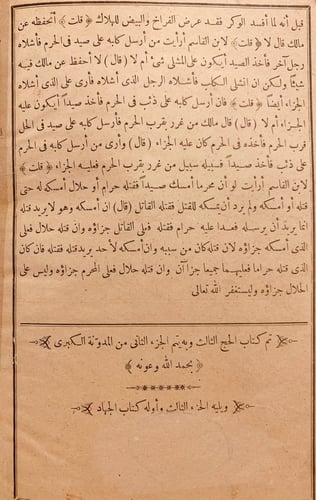 قبل أنه لما أفسد الوكر فقد عرض الفراخ والبيض للهلاك ﴿ قلت ﴾ أتحفظه عن
مالك قال لا ﴿ قلت ﴾ لابن القاسم أرأيت من أرسل كلبه على صيد في الحرم فأشلاه
رجل آخر فأخذ الصيد أيكون على المشلي شئ أم لا ﴿ قال ﴾ لا أحفظ عن مالك فيه
شيئاً ولكن ان انشلى الكلب فأشلاه الرجل الذى أشلاه فأرى على الذى أشلاه
الجزاء أيضاً ﴿ قلت ﴾ فان أرسل كلبه على ذئب في الحرم فأخذ صيداً أيكون عليه
الجزاء أم لا ﴿ قال ﴾ قال مالك من غرر بقرب الحرم فأرسل كلبه على صيد في الحل
قرب الحرم فأخذه في الحرم كان عليه الجزاء ﴿ قال ﴾ وأرى من أرسل كلبه في الحرم
على ذئب فأخذ صيداً فسبيله سبيل من غرر بقرب الحرم فعليه الجزاء ﴿ قلت ﴾
لابن القاسم أرأيت لو أن محرما أمسك صيداً فقتله حرام أو حلال أمسكه له حتى
قتله أو أمسكه ولم يرد أن يمسكه للقتل فقتله القاتل ﴿ قال ﴾ ان أمسكه وهو لا يريد قتله
انما يريد أن يرسله فعدا عليه حرام فقتله فعلى القاتل جزاؤه وان قتله حلال فعلى
الذى أمسكه جزاؤه لان قتله كان من سببه وان أمسكه لأحد يريد قتله فقتله فان كان
الذى قتله حراما فعليهما جميعا جزاآن وان قتله حلال فعلى المحرم جزاؤه وليس على
الحلال جزاؤه وليستغفر الله تعالى
تم كتاب الحج الثالث وبه يتم الجزء الثانى من المدونة الكبرى
﴿ بحمد الله وعونه ﴾
ويليه الجزء الثالث وأوله كتاب الجهاد